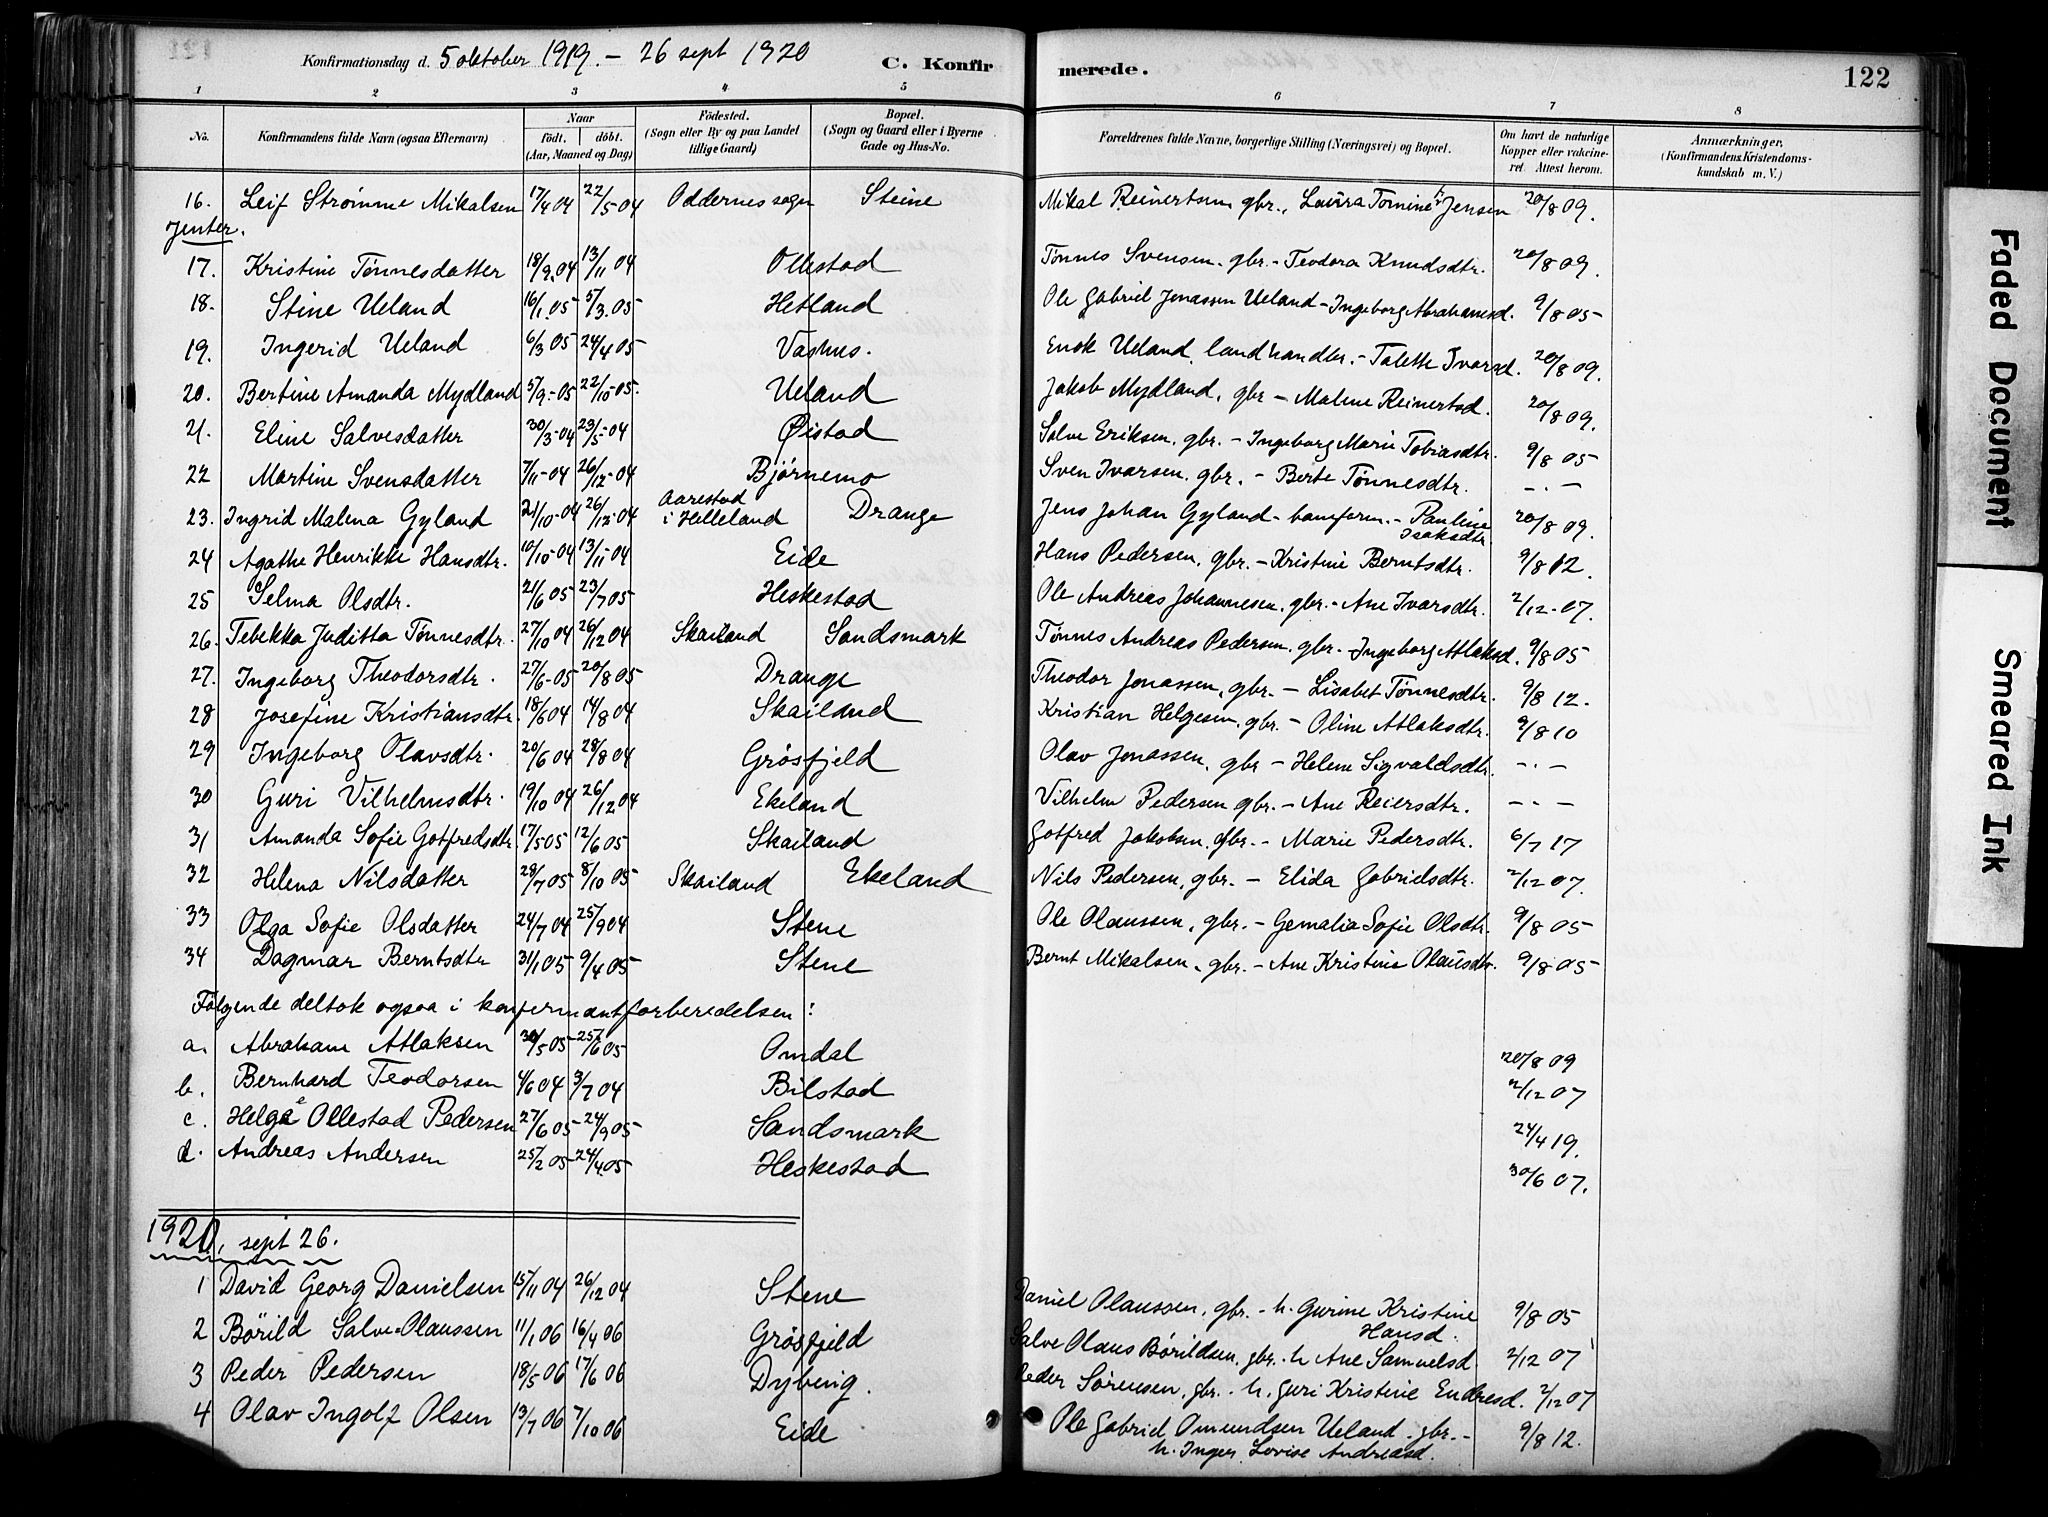 Konfirmationsdag d. 5 oktober 1919. – 26 sept 1920 C. Konfirmerede. 122
1 2 3 4 5 6 7 8
No. Konfirmandens fulde Navn (ogsaa Efternavn) Naar født. døbt. (Aar, Maaned og Dag) Fødested. (Sogn eller By og paa Landet tillige Gaard) Bopæl. (Sogn og Gaard eller i Byerne Gade og Hus-No. Forældrenes fulde Navne, borgerlige Stilling (Næringsvei) og Bopæl. Om havt de naturlige Kopper eller vakcineret. Attest herom. Anmærkninger. (Konfirmandens Kristendomskundskab m. V.)
16. Leif Strømme Mikalsen 17/4 04 22/5-04 Oddernes sogn Steine Mikal Reinertsen, gbr., Laura Tomine Jensen 20/8 09.
Jenter.
17. Kristine Tønnesdatter 18/9 04 13/11 04 Ollestad Tønnes Svensen. gbr. - Teodora Knudsdtr. 20/8 09.
18. Stine Ueland 16/1 05 5/3.05 Hetland Ole Gabriel Jonassen Ueland - Ingeborg Abrahamsd. 9/8 05
19. Ingerid Ueland 6/3 05 24/4 05 Vashus. Enok Ueland, landhandler. - Talette Ivarsd. 20/8 09.
20. Bertine Amanda Mydland 5/9.-05 22/10-05. Ueland Jakob Mydland, gbr - Malene Reinertsd. 20/8 09.
21. Eline Salvesdatter 30/3-04 23/5-04 Øistad Salve Eriksen, gbr. - Ingeborg Marie Tobiasdtr. 9/8 05
22 Martine Svensdatter 7/11-04 26/12-04 Bjørnemo Sven Ivarsen, gbr. - Berte Tønnesdtr. - . -
23. Ingrid Malena Gyland 21/10-04 26/12-04 Aarestad i Helleland Drange Jens Johan Gyland - baneform. - Pauline Isaksdtr. 20/8 09.
24 Agathe Henrikke Hansdtr. 10/10-04 13/11-04 Eide Hans Pedersen, gbr. - Kristine Berntsdtr. 9/8 12.
25 Selma Olsdtr. 21/6 05 23/7 05 Heskestad Ole Andreas Johannesen, gbr. - Ane Ivarsdtr. 2/12-07.
26. Tebekka Juditta Tønnesdtr. 27/10 04 26/12 04 Skailand Sandsmark Tønnes Andreas Pedersen, gbr - Ingeborg Atlaksd. 9/8 05
27. Ingeborg Theodorsdtr. 27/6-05 20/8 05 Drange Theodor Jonassen, gbr. - Lisabet Tønnesdtr. 9/8 12.
28 Josefine Kristiansdtr. 18/6 04 14/8 04 Skailand Kristian Helgesen, gbr. - Oline Atlaksdtr. 9/8 10
29 Ingeborg Olavsdtr. 20/6 04 28/8 04 Grøsfjeld Olav Jonassen, gbr - Helene Sigvaldsdtr. - . -
30 Guri Vilhelmsdtr. 19/10 04 26/12 04 Ekeland Vilhelm Pedersen gbr. - Ane Reiersdtr. - . -
31 Amanda Sofie Gotfredsdtr. 17/5 05 12/6 05 Skailand Gotfred Jakobsen, gbr. - Marie Pedersdtr. 6/7 17
32 Helena Nilsdatter 28/7 05 8/10 05 Skailand Ekeland Nils Pedersen, gbr. - Elida Gabrielsdtr. 2/12 07.
33 Olga Sofie Olsdatter 24/7 04 25/9 04 Stene Ole Olaussen, gbr. - Gemalia Sofie Olsdtr. 9/8 05
34 Dagmar Berntsdtr 31/1 05 9/4 05 Stene Bernt Mikalsen, gbr. - Ane Kristine Olausdtr. 9/8 05
Følgende deltok ogsaa i konfirmantforberedelsen:
a. Abraham Atlaksen 30/5 05 25/6 05 Omdal 20/8 09
b. Bernhard Teodorsen 4/6 04 3/7 04 Bilstad 2/12 07
c. Helge Ollestad Pedersen 27/6 05 24/9 05 Sandsmark 24/4 19.
d. Andreas Andersen 25/2 05 24/4.05 Heskestad 30/6 07.
1920, sept 26.
1 David Georg Danielsen 15/11 04 26/12 04 Stene Daniel Olaussen, gbr. - h. Gurine Kristine Hansd. 9/8 05
2 Børild Salve Olaussen 11/1 06 16/4 06 Grøsfjeld Salve Olaus Børildsen, gbr. h Ane Samuelsd. 2/12 07
3 Peder Pedersen 18/5 06 17/6 06 Dybing. Peder Sørensen, gbr. - h. Guri Kristine Endresd. 2/12 07
4 Olav Ingolf Olsen 13/7 06 7/10 06 Eide Ole Gabriel Omundsen Ueland. gbr. - h. Inger Lovise Andreasd. 9/8 12.
Faded Document
Smeared Ink